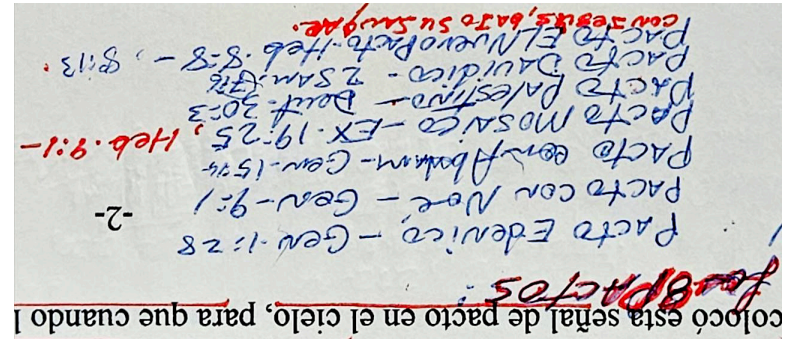 colocó esta señal de pacto en el cielo, para que cuando l
Los 8 PACTOS:
PACTO Edenico - Gen-1:28
PACTO con Noe, - Gen-9:1
-2-
PACTO con Abraham - Gen-15:4-
PACTO MOSAICO - EX. 19:25, Heb. 9:1-
PACTO PALESTINO - Deut-30:3
PACTO DAVIDICO - 2 SAM:
PACTO EL Nuevo Pacto. Heb. 8:8 -, 8:13.
CON JESUS, BAJO SU SANGRE.